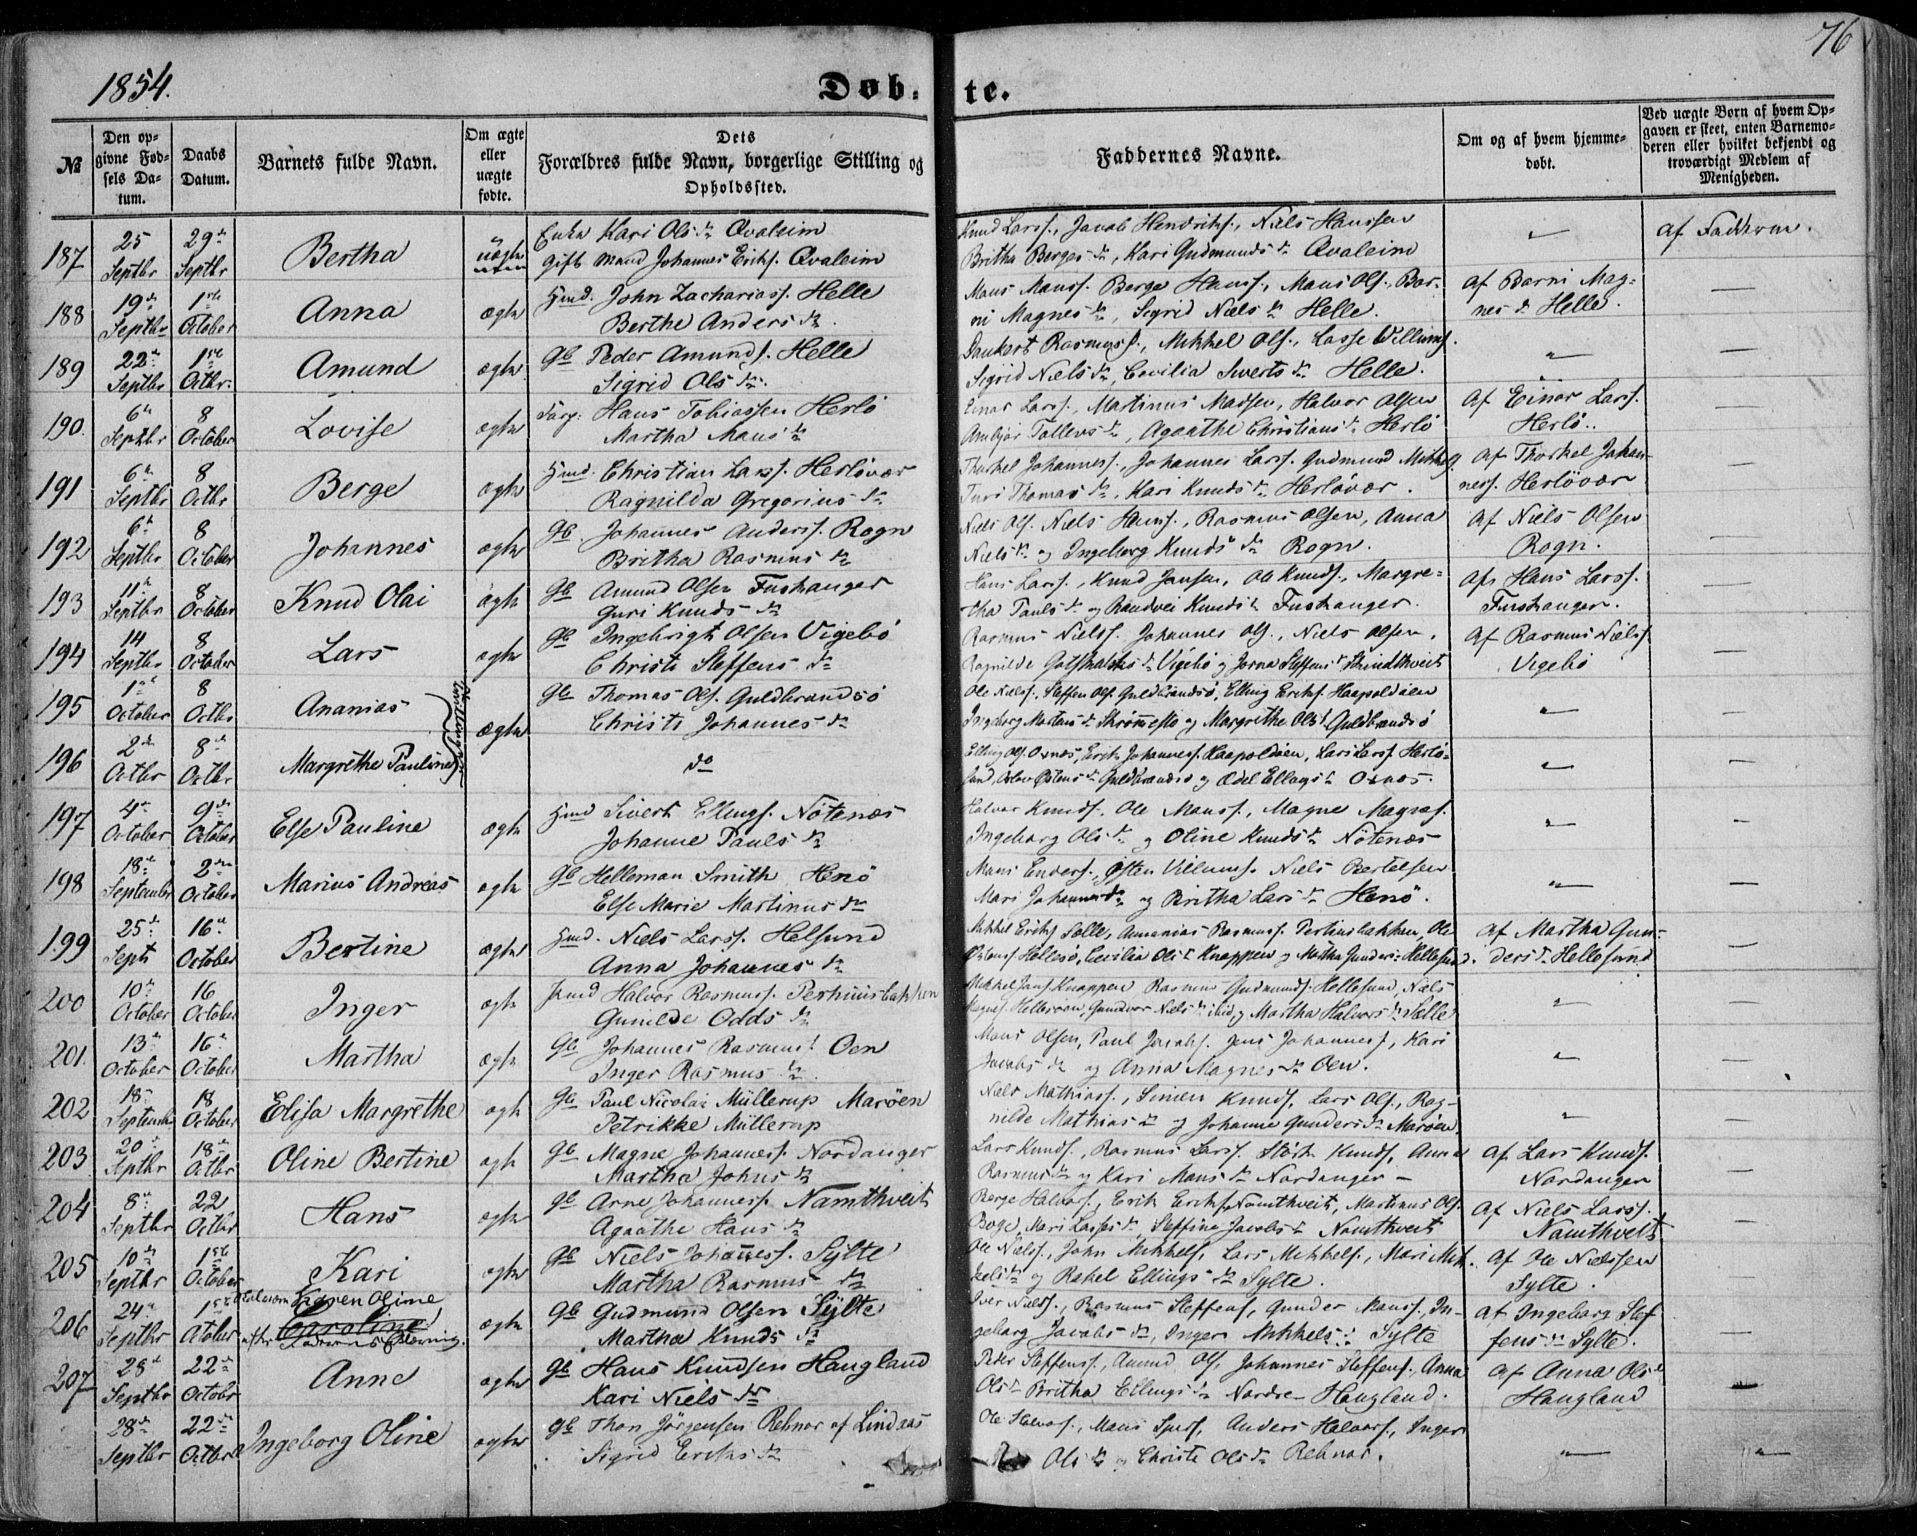 76
1854.
Døb-te.
№
Den op-
givne Fød-
sels Da-
tum.
Daabs
Datum.
Barnets fulde Navn.
Om ægte
eller
uægte
fødte.
Dets
Forældres fulde Navn, borgerlige Stilling og
Opholdssted.
Faddernes Navne.
Om og af hvem hjemme-
døbt.
Ved uægte Børn af hvem Op-
gaven er skeet, enten Barnemo-
deren eller hvilket bekjendt og
troværdigt Medlem af
Menigheden.
187 25 Septbr 29de Septbr Bertha uægte
Enke Kari Olsdr Qvaleim
Gift Mand Johannes Eriks. Qvaleim
Knud Larss., Jacob Hendriks., Niels Hanssen
Britha Bergesdr, Kari Gudmundsdr Qvaleim
af Fadderne.
188 19de Septbr 1ste October Anna ægte
Hmd. John Zachariass. Helle
Berthe Andersdr.
Mons Monss. Berge Hanss., Mons Ols., Bar-
ni Magnesdr, Sigrid Nielsdr Helle.
af Barni Mag-
nesdr Helle.
189 22de Septbr 1ste Octbr. Amund ægte
Gb Peder Amunds. Helle
Sigrid Olsdr.
Dankert Rasmuss., Mikkel Ols., Lasse Villums.
Sigrid Nielsdr, Cecilia Sivertsdr Helle.
190. 6te Septbr 8 October Lovise ægte
Hans Tobiassen Herlø
Martha Monsdr
Einar Larss., Martinus Madsen, Halvor Olsen
Ambjør Tollevsdr, Agaathe Christiansdr Herlø
af Einar Larss.
Herlø.
191 6te Septbr 8 Octbr Berge ægte
Hmd. Christian Larss. Herløvær
Ragnilda Gregoriusdr
Thorkel Johanness., Johannes Larss. Gudmund Mikkels
Turi Thomasdr, Kari Knudsdr Herløvær.
af Thorkel Johan-
ness. Herløvær
192 6te Septbr 8 October Johannes ægte
Gb. Johannes Anderss. Rogn
Britha Rasmusdr
Niels Ols. Niels Hanss., Rasmus Olsen, Anna
Nielsdr og Ingeborg Knudsdr Rogn.
af Niels Olsen
Rogn.
193 11te Septbr 8 October Knud Olai ægte
Gb Amund Olsen Fushanger
Guri Knudsdr
Hans Larss., Knud Jansen, Ole Knuds., Margre-
tha Paulsdr og Randvei Knudsdr Fushanger.
af Hans Larss.
Fushanger.
194 14 Septbr 8 October Lars ægte
Gb Ingebrigt Olsen Vigebø
Christi Steffensdr
Rasmus Nielss. Johannes Ols., Niels Olsen,
Ragnilde Gotskalksdr Vigebø og Jorna Steffensdr
af Rasmus Nielss.
Vigebø
195 1ste October 8 Octbr Ananias Tvillinger ægte
Gb Thomas Ols. Guldbrandsø
Christi Johannesdr
Ole Nielss., Steffen Ols. Guldbrandsø, Elling Eriks. Haapoldøen
Ingeborg og Margrethe Olsdr Guldbrandsø
196 2den Octbr 8de Octbr Margrethe Pauline
do
Elling Ols. Osnes, Erik Johanness. Haapoldøen, Lars Larss. Herlø-
sund, Guldbrandsø og Ædel Ellingsdr Osnes.
197 4de October 9de October Else Pauline ægte
Hmd Sivert Ellings. Nøtenæs
Johanne Paulsdr
Halvor Knuds. Ole Monss., Magne Magnes.
Ingeborg Olsdr og Oline Knudsdr Nøtenæs
198 18de September 2den October Marius Andreas ægte
Gb Helleman Smith Henø
Else Marie Martinusdr
Mons Enders., Østen Villums. Niels Bertelsen
Mari Johannesdr og Britha Larsdr Henø.
199 25de Septb 16de October Bertine ægte
Hmd. Niels Larss. Helsund
Anna Johannesdr
Mikkel Eriks Sælle, Annanias Rasmuss. Perhusbakken, Ole
Hellesø, Cecilia Olsdr Knappen og Martha Gundersdr Hellesund.
af Martha Gun-
dersdr Hellesund
200 10de October 16 October Inger ægte
Hmd Halvor Rasmuss. Perhuusbakken
Gunilde Oddsdr
Mikkel Jans. Knappen Rasmus Gudmunds. Hellesund, Niels
Magnes. Hellesøen, Gundvor Nielsdr ibid, og Martha Halvorsdr Sælle
201. 13de October 16de October Martha ægte
Gb Johannes Rasmuss. Oen
Inger Rasmusdr.
Mons Olsen, Paul Jacobs. Jens Johanness., Kari
Jacobsdr og Anna Magnesdr Oen.
202 18de September 18 October Elisa Margrethe ægte
Gb Paul Nicolai Müllerup Marøen
Petrikke Müllerup
Niels Mathiass., Simen Knuds., Lars Ols., Rag-
nilde Mathiasdr og Johanne Gundersdr Marøen.
203 20de Septbr 18de Octbr Oline Bertine ægte
Gb Magne Johanness. Nordanger
Martha Johnsdr
Lars Knuds., Rasmus Larss. Størk Knuds., Anna
Rasmusdr og Kari Monsdr Nordanger
af Lars Knuds.
Nordanger
204 8de Septbr 22 Octbr Hans ægte
Gb Arne Johanness. Namthveit
Agaathe Hansdr
Berge Halvors., Erik Eriks. Namthveit, Martinus Ols.
Boge, Mari Larsdr, Steffine Jacobsdr Namthveit
af Niels Larss.
Namthveit
205 10de Septbr 1ste October Kari ægte
Gb Niels Johanness. Sylte
Martha Rasmusdr
Ole Nielss., John Mikkels., Lars Mikkels., Mari Mik-
kelsdr og Rakel Ellingsdr Sylte.
af Ole Nielssen
Sylte.
206 24de Septbr 1ste October Karen Olime
Caroline
efter Faderens ægte
Gb Gudmund Olsen Sylte
Martha Knudsdr
Iver Nielss., Rasmus Steffens., Gunder Monss. In-
geborg Jacobsdr, Inger Mikkelsdr Sylte
af Ingeborg Stef-
fensdr Sylte.
207 28de Septbr 22de October Anne ægte
Gb Hans Knudsen Haugland
Kari Nielsdr
Peder Steffens., Amund Ols., Johannes Steffens., Anna
Olsdr Britha Ellingsdr Nordre Haugland.
af Anna Olsdr
Haugland
28de Septbr 22de Octbr Ingeborg Oline ægte
Gb Thon Jørgensen Rebnor af Lindaas
Sigrid Eriksdr
Ole Halvors., Mons Anders Halvors., Inger
Olsdr og Christi Olsdr Rebnor.